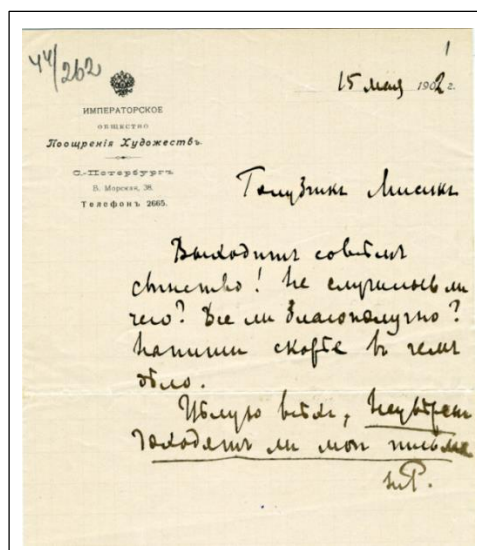 44/262
1
15 мая 1902 г.
ИМПЕРАТОРСКОЕ
ОБЩЕСТВО
Поощренія Художествъ.
С.-Петербургъ
Б. Морская, 38.
Телефонъ 2665.
Голубчикъ Мисикъ
Выходитъ совсѣмъ
свинство! Не случилось ли
чего? Все ли благополучно?
Напиши скорѣе въ чемъ
дѣло.
Цѣлую всѣхъ, Неувѣренъ
доходятъ ли мои письма
НР.